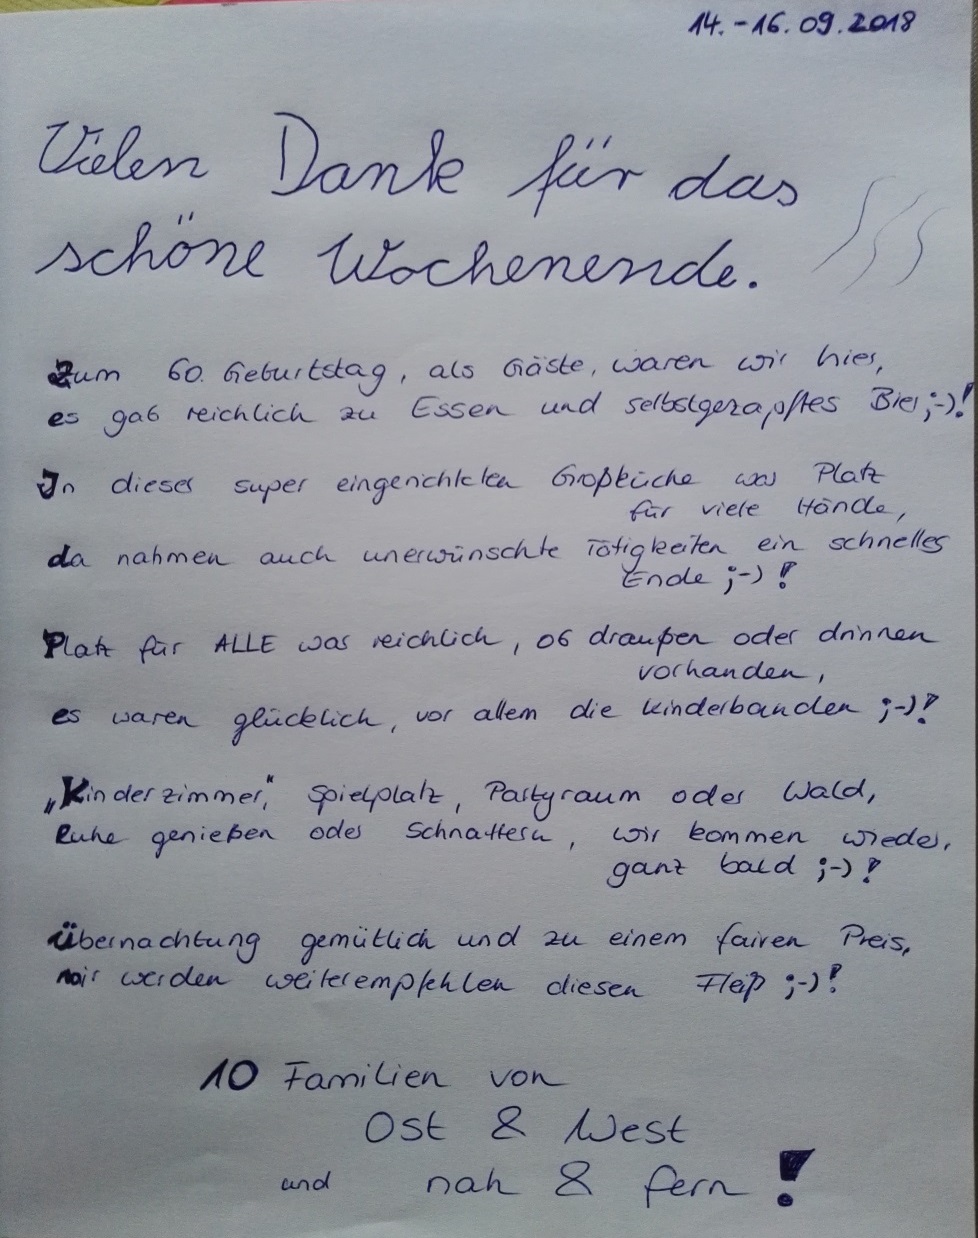 14.-16.09.2018
Vielen Dank für das
schöne Wochenende.
Zum 60. Geburtstag, als Gäste, waren wir hier,
es gab reichlich zu Essen und selbstgezapftes Bier ;-)!
In dieser super eingerichteten Großküche war Platz
für viele Hände,
da nahmen auch unerwünschte Tätigkeiten ein schnelles
Ende ;-)!
Platz für ALLE war reichlich, ob draußen oder drinnen
vorhanden,
es waren glücklich, vor allem die Kinderbanden ;-)!
„Kinderzimmer“, Spielplatz, Partyraum oder Wald,
Ruhe genießen oder Schnattern, wir kommen wieder,
ganz bald ;-)!
Übernachtung gemütlich und zu einem fairen Preis,
wir werden weiterempfehlen diesen Fleiß ;-)!
10 Familien von
Ost & West
und nah & fern!